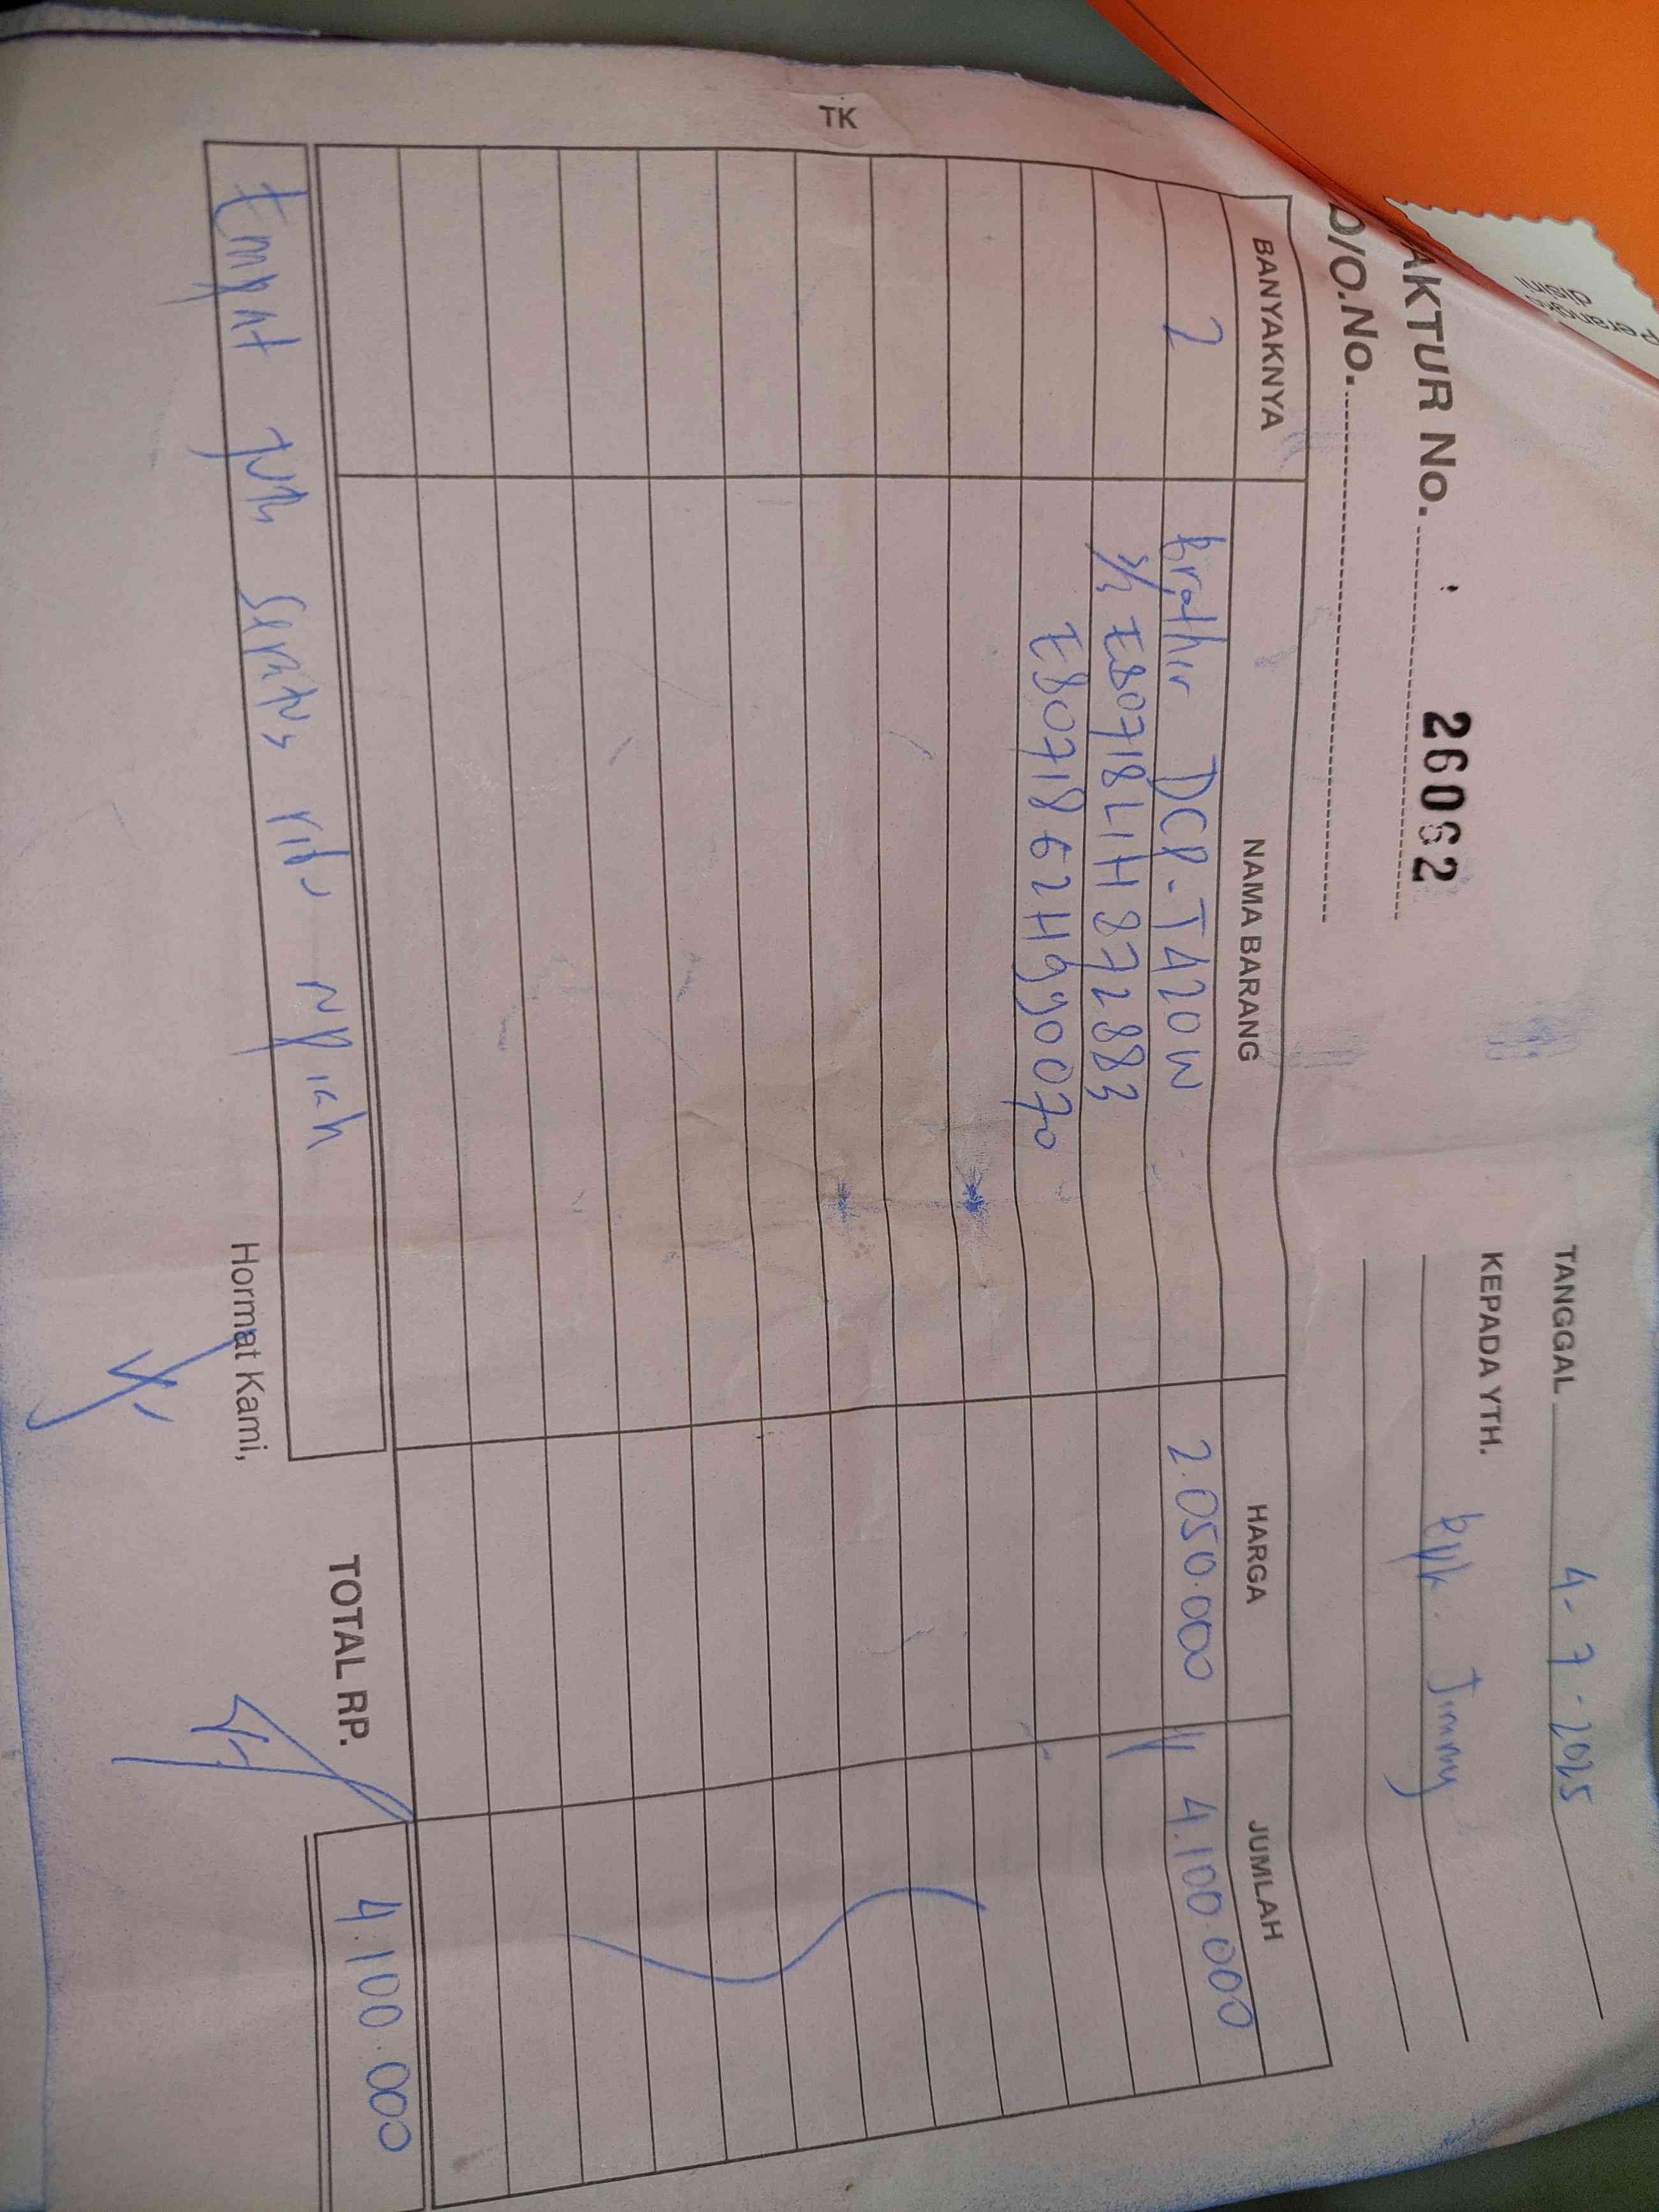 AKTUR No. 26062
D/O.No.
TANGGAL 4-7-2025
KEPADA YTH. Bpk. Jimmy
BANYAKNYA NAMA BARANG HARGA JUMLAH
2 Brother DCP-T420W 2.050.000 4.100.000
S/N E80718L1H872883
E80718G2H990070
TK
TOTAL RP. 4.100.000
Empat juta seratus ribu rupiah
Hormat Kami,
Perangko
disini